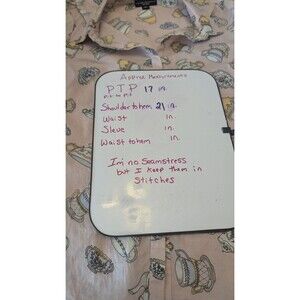 Approx Measurements
PTP 17 in.
pit to pit
Shoulder to hem 21 in.
Waist in.
Sleve in.
Waist to hem
Im no Seamstress
but I keep them in
Stitches